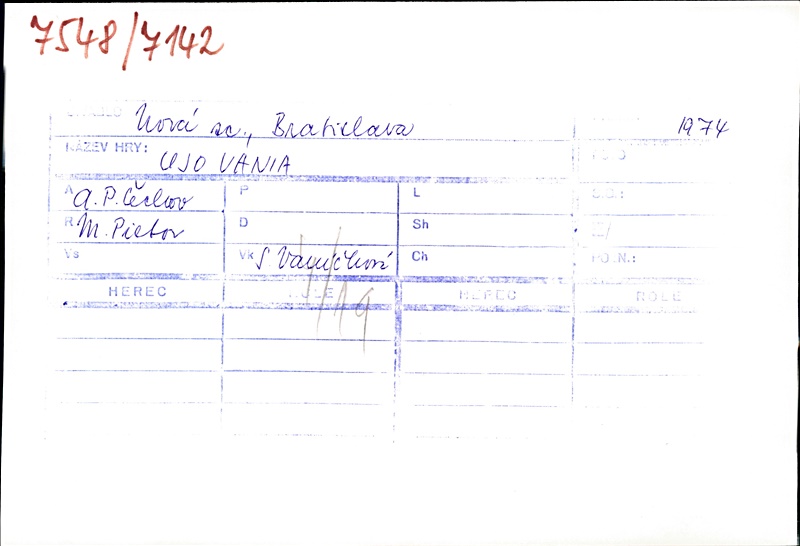 7548/7142
DIVADLO Nová sc., Bratislava 1974
NÁZEV HRY: UJO VANIA
A A.P. Čechov P L
R M. Pietor D Sh
Vs Vk S Vanichová Ch POZN.:
HEREC ROLE HEREC ROLE